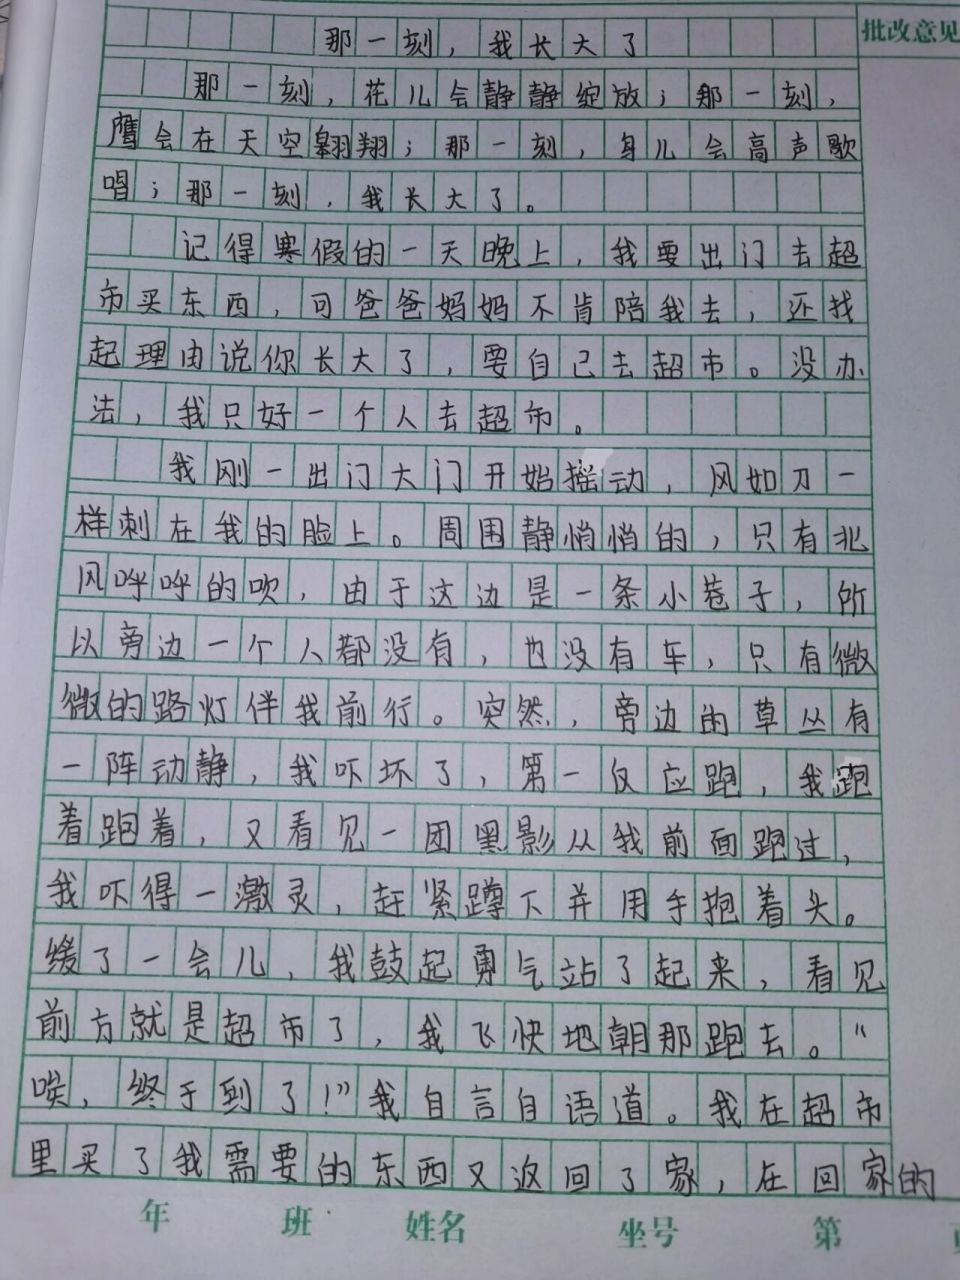 批改意见
那一刻，我长大了
那一刻，花儿会静静绽放；那一刻，
鹰会在天空翱翔；那一刻，身儿会高声歌
唱；那一刻，我长大了。
记得寒假的一天晚上，我要出门去超
市买东西，可爸爸妈妈不肯陪我去，还找
起理由说你长大了，要自己去超市。没办
法，我只好一个人去超市。
我刚一出门大门开始摇动，风如刀一
样刺在我的脸上。周围静悄悄的，只有北
风呼呼的吹，由于这边是一条小巷子，所
以旁边一个人都没有，也没有车，只有微
微的路灯伴我前行。突然，旁边的草丛有
一阵动静，我吓坏了，第一反应跑，我跑
着跑着，又看见一团黑影从我前面跑过，
我吓得一激灵，赶紧蹲下并用手抱着头。
缓了一会儿，我鼓起勇气站了起来，看见
前方就是超市了，我飞快地朝那跑去。“
唉，终于到了！”我自言自语道。我在超市
里买了我需要的东西又返回了家，在回家的
年 班 姓名 坐号 第